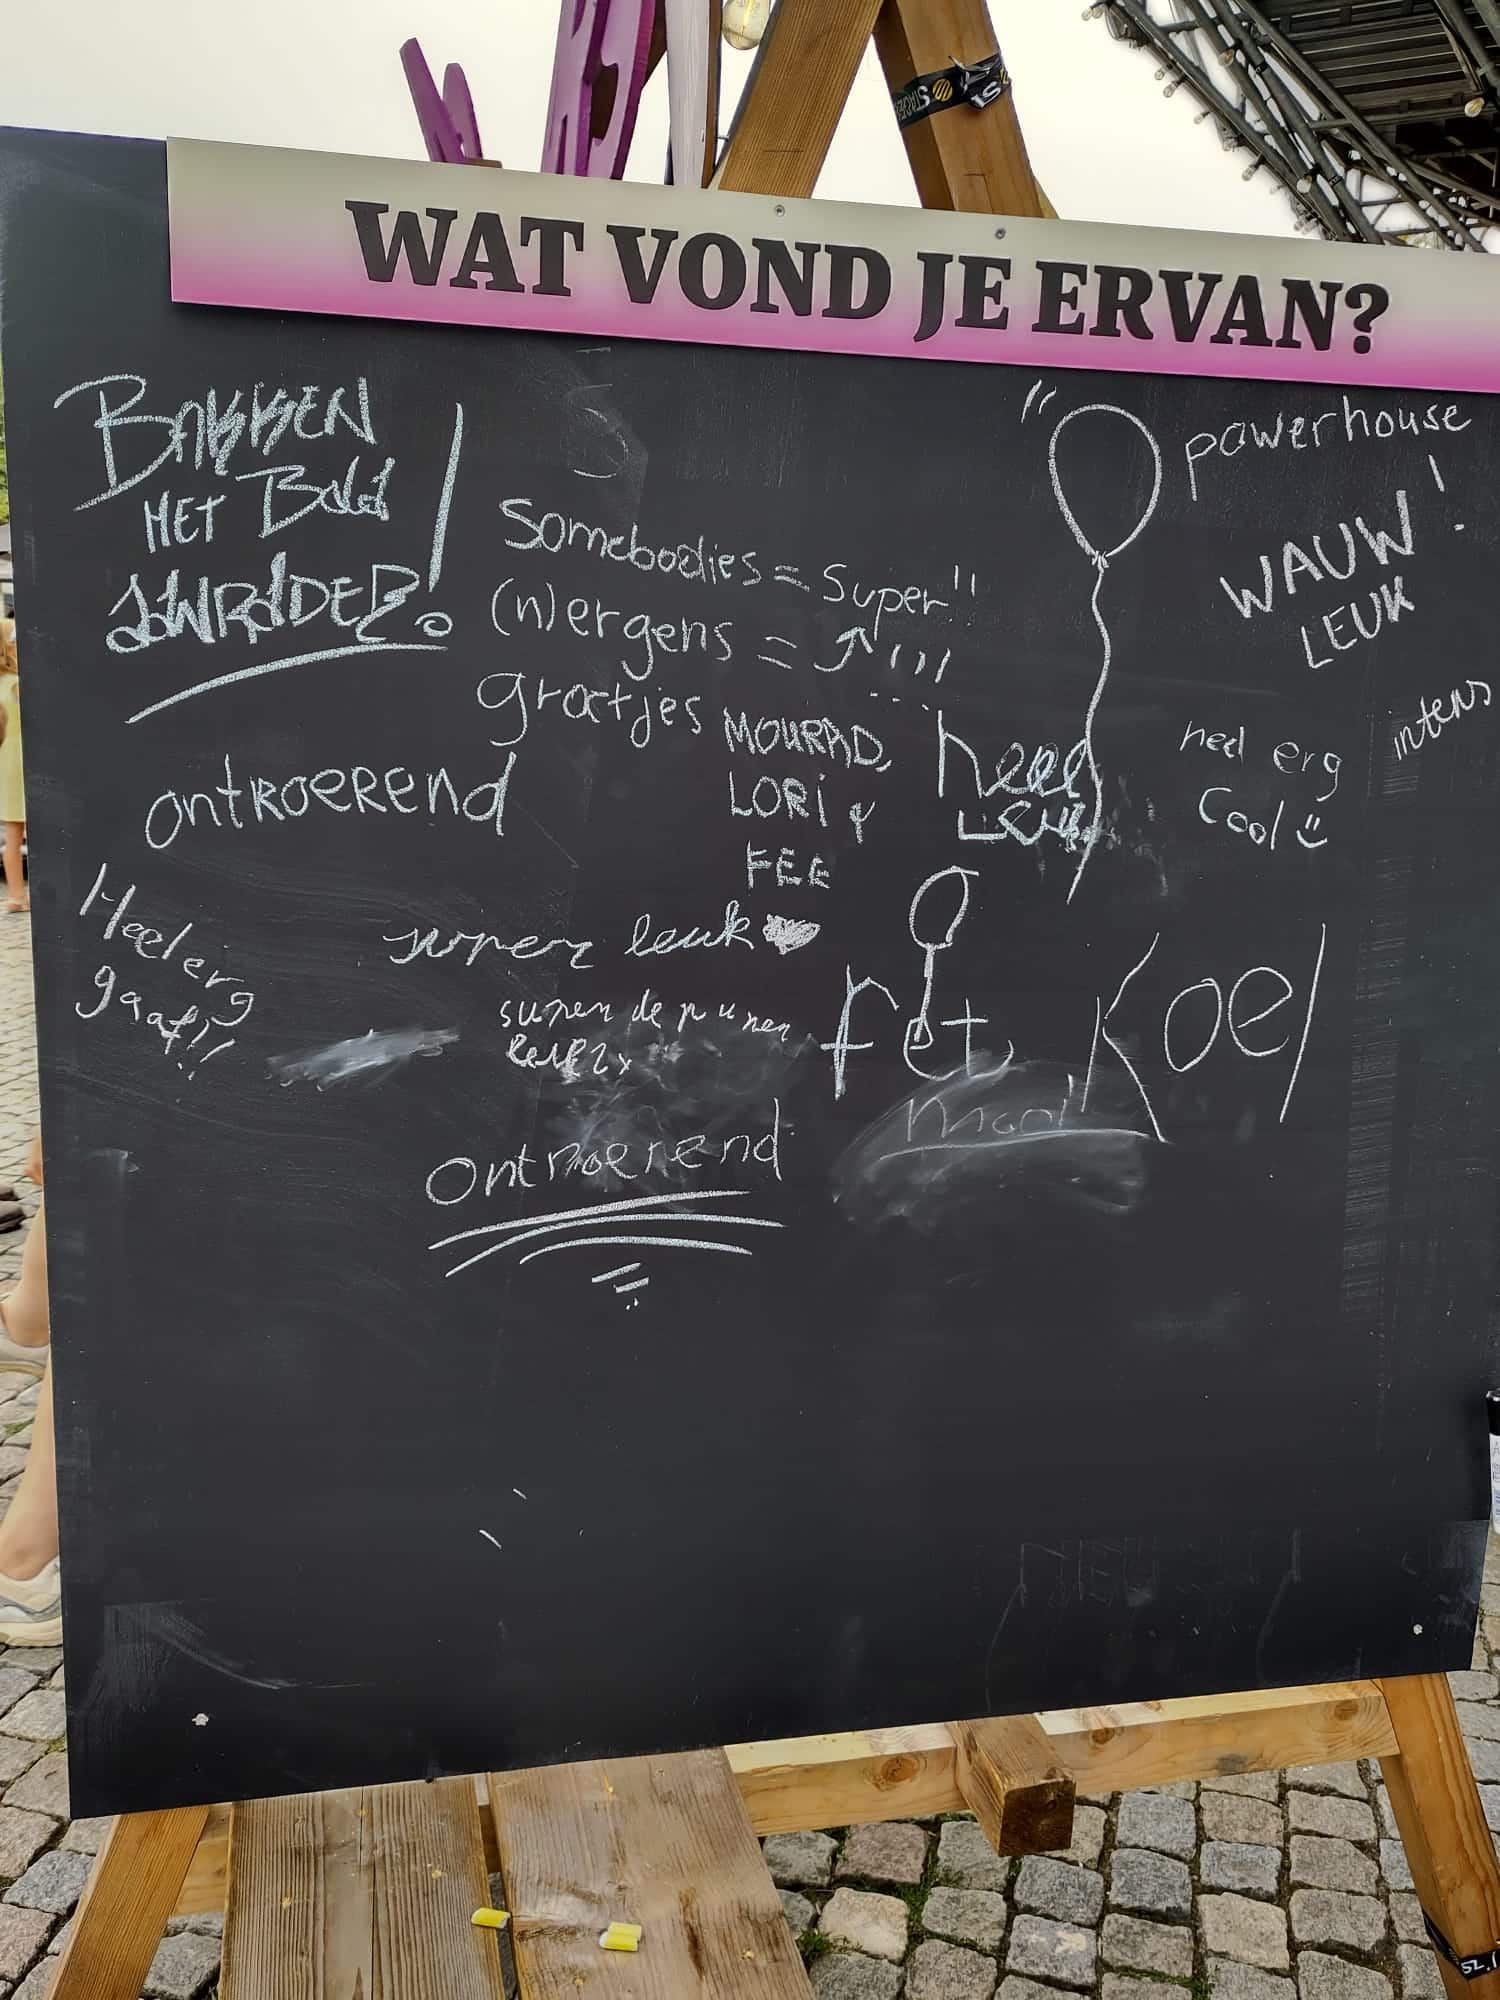 WAT VOND JE ERVAN?
BAKKEN
MET Bald
AANRADER!
Somebodies = Super!!
(n)ergens = ↗ !!!
groetjes MOURAD,
LORI &
FEE
powerhouse
WAUW!
LEUK
intens
heel erg
Cool
heel
Leuk
ontroerend
Heel erg
gaaf!!
super leuk ♥
super de puper
leuk 2x
ret
Koel
mooi
ontroerend